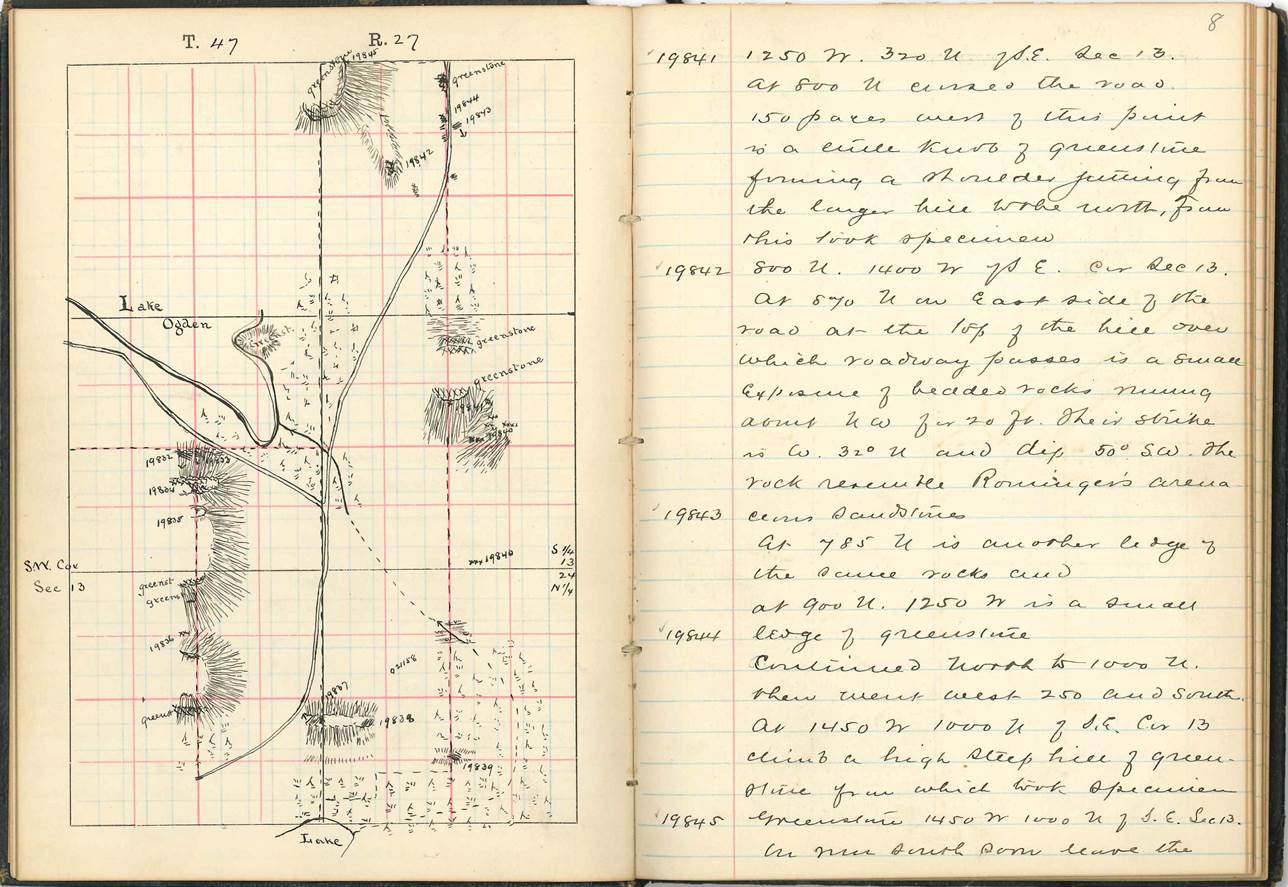 T. 47 R. 27
greenstone 19845
greenstone
19844
19843
19842
Lake
Ogden
greenst.
greenstone
greenstone
19832
19834
19835
19840
S.W. Cor
Sec 13
S 1/4
13
24
N 1/4
greenst
greenst
19836
19837
19838
greenst
19839
Lake
8
19841 1250 W. 320 N of S.E. Sec 13.
At 800 N crossed the road.
150 paces west of this point
is a little knob of greenstone
forming a shoulder jutting from
the larger hill to the north, From
this took specimen
19842 800 N. 1400 W of S E. Cor Sec 13.
At 870 N on East side of the
road at the top of the hill over
which roadway passes is a small
Exposure of bedded rocks running
about NW for 20 ft. Their strike
is W. 32° N and dip 50° SW. The
rock resemble Rominger's arena
19843 ceous sandstones
At 785 N is another ledge of
the same rocks and
at 900 N. 1250 W is a small
19844 ledge of greenstone
Continued North to 1000 N.
then went west 250 and South.
At 1450 W 1000 N of S.E. Cor 13
climb a high steep hill of green-
stone from which took specimen
19845 Greenstone 1450 W 1000 N of S. E. Sec 13.
On run south soon leave the